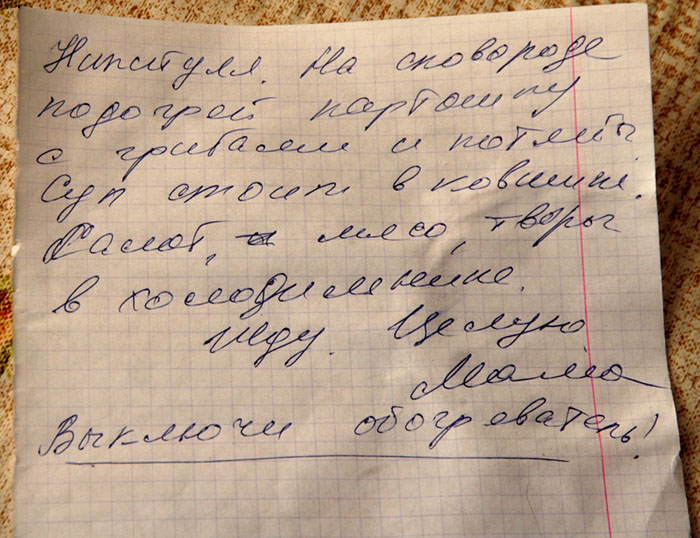 Никитуля. На сковороде
подогрей картошку
с грибами и котлеты.
Суп стоит в ковшике.
Салат, мясо, творог
в холодильнике.
Жду. Целую
Мама
Выключи обогреватель!